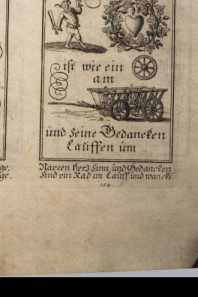 ist wie ein
am
und seine Gedancken
Lauffen um
ge,
ge.
Narren Hertz Sinn und Gedancken
Sind ein Rad im Lauff und wanck